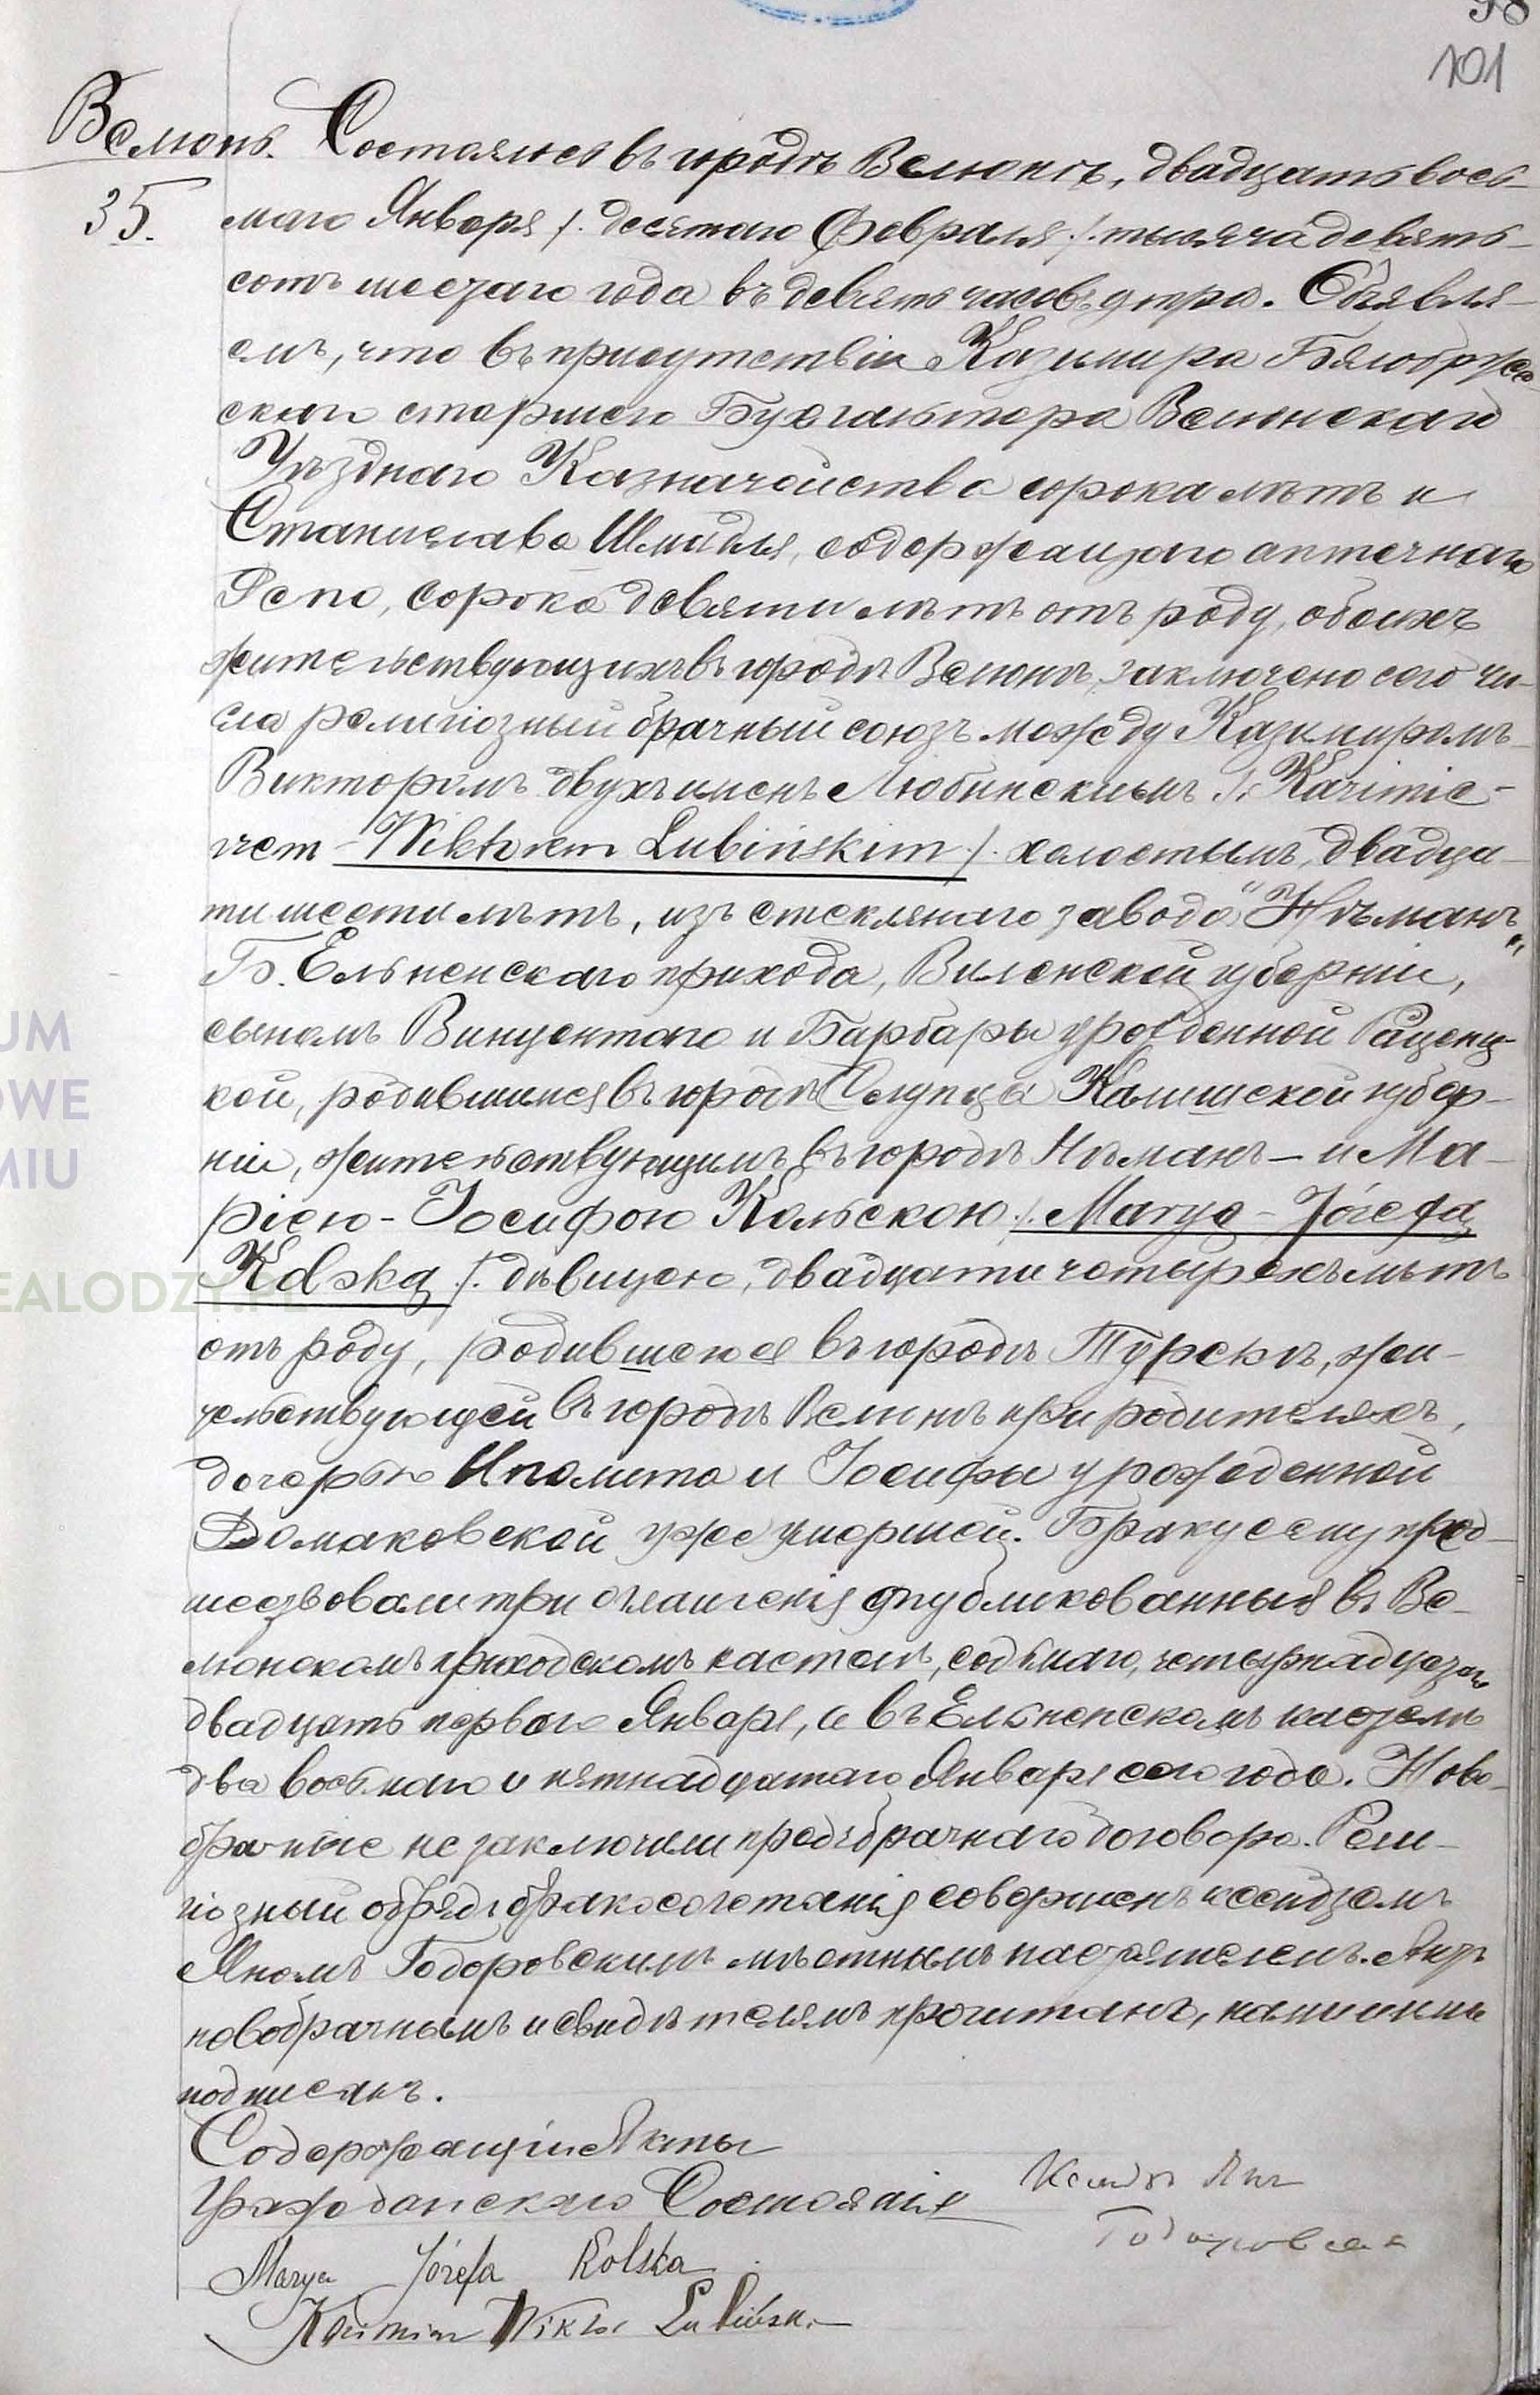 98
101
Велюнь. Состоялось въ городѣ Велюнѣ, двадцать вось-
35. маго Января /. десятаго Февраля ./. тысяча девять-
сотъ шестаго года въ девять часовъ утра. Объявля-
емъ, что въ присутствіи Казимира Бялобрже-
скаго старшего Бухгалтера Велюнскаго
Уѣзднаго Казначейства сорока лѣтъ и
Станислава Шмидля, содержащаго аптечнаго
Депо, сорока девяти лѣтъ отъ роду, обоихъ
жительствующихъ въ городѣ Велюнѣ, заключено сего чи-
сла религіозный брачный союзъ между Казимиромъ-
Викторомъ двухъ именъ Любинскимъ /. Kazimie-
rzem - Wiktorem Lubińskim ./. холостымъ, двадца-
ти шести лѣтъ, изъ стекляннаго завода "Нѣманъ"
Б. Ельненскаго прихода, Виленской губерніи,
сыномъ Винцентаго и Барбары урожденной Раценц-
кой, родившимся въ городѣ Слупца Калишской губер-
ніи, жительствующимъ въ городѣ Нѣманъ - и Ма-
ріею - Іосифою Кольскою ./. Maryą - Józefą
Kolską ./. дѣвицею, двадцати четырехъ лѣтъ
отъ роду, родившеюся въ городѣ Турекъ, жи-
тельствующей въ городѣ Велюнѣ при родителяхъ,
дочерью Иполита и Іосифы урожденной
Домаковской уже умершей. Браку сему пред-
шествовали три оглашенія опубликованныя въ Ве-
люнскомъ приходскомъ костелѣ, седьмаго, четырнадцатаго
двадцать перваго Января, а въ Ельненскомъ костелѣ
два восьмаго и пятнадцатаго Января сего года. Ново-
брачные не заключили предбрачнаго договора. Рели-
гіозный обрядъ бракосочетанія совершенъ ксендзомъ
Яномъ Годоровскимъ мѣстнымъ настоятелемъ. Актъ
новобрачнымъ и свидѣтелямъ прочитанъ, нами ими
подписанъ.
Содержащій Акты
Гражданскаго Состоянія Ксендзъ Янъ
Годоровскій
Marya Józefa Kolska
Kazimierz Wiktor Lubiński